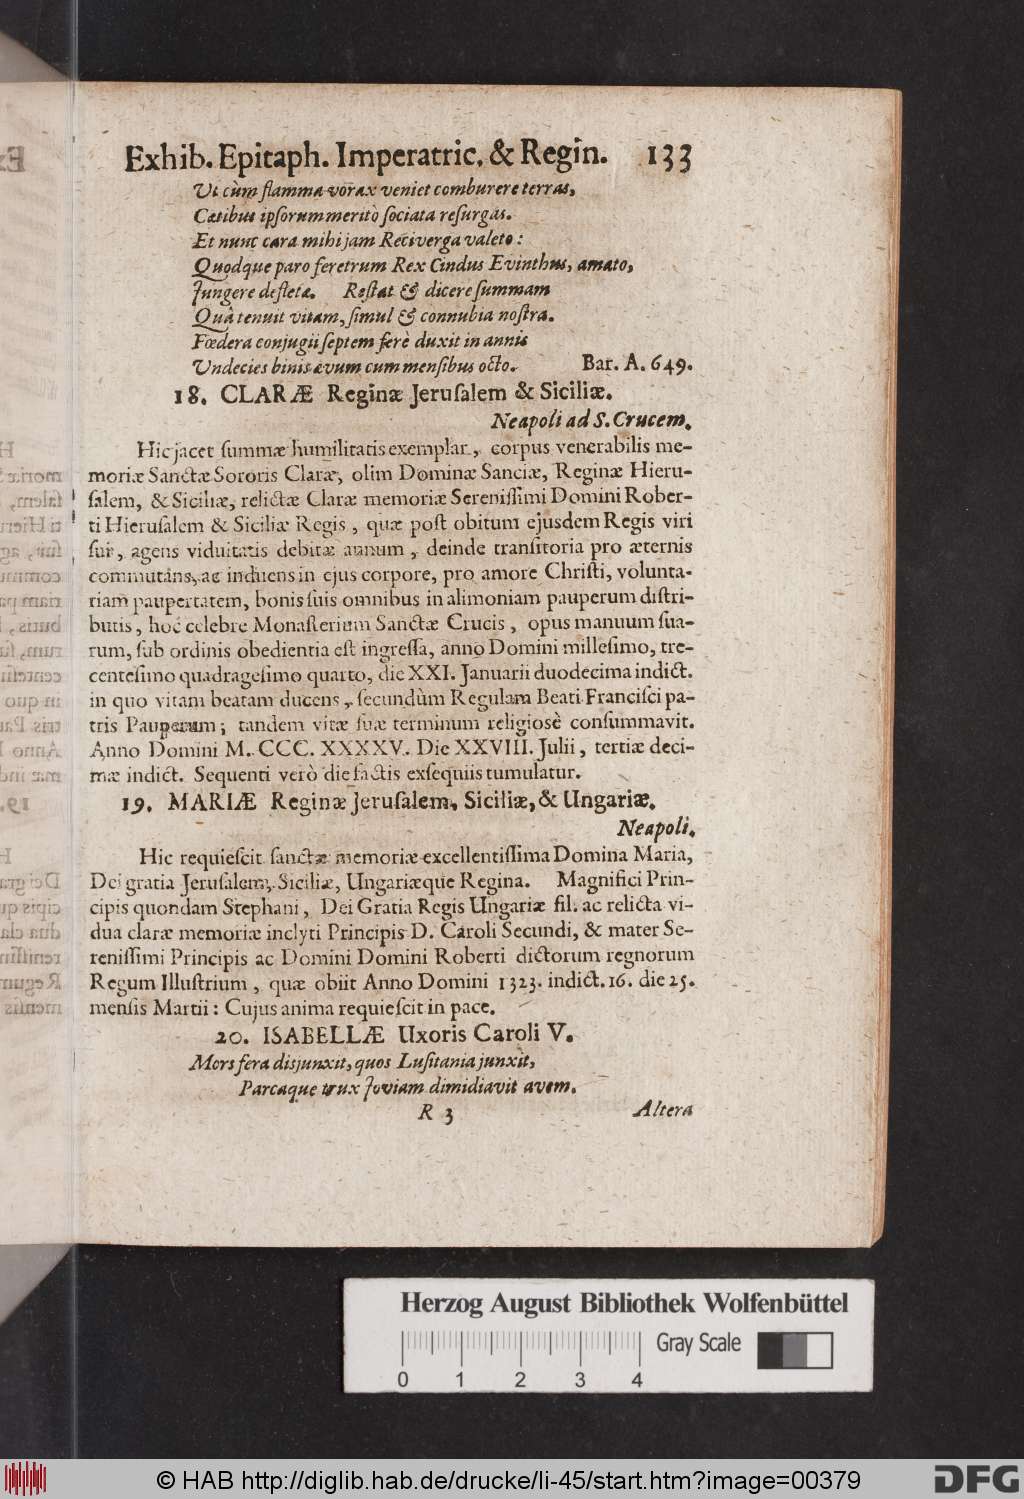 Exhib. Epitaph. Imperatric. & Regin. 133
Ut cùm flamma vorax veniet comburere terras,
Cœtibus ipsorum meritò sociata resurgas.
Et nunc cara mihi jam Reciverga valeto:
Quodque paro feretrum Rex Cindus Evinthus, amato,
Jungere defleta. Restat & dicere summam
Quâ tenuit vitam, simul & connubia nostra.
Fœdera conjugii septem ferè duxit in annis
Undecies binis ævum cum mensibus octo. Bar. A. 649.
18. CLARÆ Reginæ Jerusalem & Siciliæ.
Neapoli ad S. Crucem.
Hic jacet summæ humilitatis exemplar, corpus venerabilis me-
moriæ Sanctæ Sororis Claræ, olim Dominæ Sanciæ, Reginæ Hieru-
salem, & Siciliæ, relictæ Claræ memoriæ Serenissimi Domini Rober-
ti Hierusalem & Siciliæ Regis, quæ post obitum ejusdem Regis viri
sui, agens viduitatis debitæ annum, deinde transitoria pro æternis
commutans, ac induens in ejus corpore, pro amore Christi, volunta-
riam paupertatem, bonis suis omnibus in alimoniam pauperum distri-
butis, hoc celebre Monasterium Sanctæ Crucis, opus manuum sua-
rum, sub ordinis obedientia est ingressa, anno Domini millesimo, tre-
centesimo quadragesimo quarto, die XXI. Januarii duodecima indict.
in quo vitam beatam ducens, secundùm Regulam Beati Francisci pa-
tris Pauperum; tandem vitæ suæ terminum religiosè consummavit.
Anno Domini M. CCC. XXXXV. Die XXVIII. Julii, tertiæ deci-
mæ indict. Sequenti verò die factis exsequiis tumulatur.
19. MARIÆ Reginæ Jerusalem, Siciliæ, & Ungariæ.
Neapoli.
Hic requiescit sanctæ memoriæ excellentissima Domina Maria,
Dei gratia Jerusalem, Siciliæ, Ungariæque Regina. Magnifici Prin-
cipis quondam Stephani, Dei Gratia Regis Ungariæ fil. ac relicta vi-
dua claræ memoriæ inclyti Principis D. Caroli Secundi, & mater Se-
renissimi Principis ac Domini Domini Roberti dictorum regnorum
Regum Illustrium, quæ obiit Anno Domini 1323. indict. 16. die 25.
mensis Martii: Cujus anima requiescit in pace.
20. ISABELLÆ Uxoris Caroli V.
Mors fera disjunxit, quos Lusitania junxit,
Parcaque trux Joviam dimidiavit avem.
R 3 Altera
Herzog August Bibliothek Wolfenbüttel
Gray Scale
0 1 2 3 4
© HAB http://diglib.hab.de/drucke/li-45/start.htm?image=00379
DFG